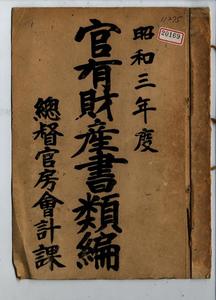 11375
20169
昭和三年度
官有財産書類編
總督官房會計課